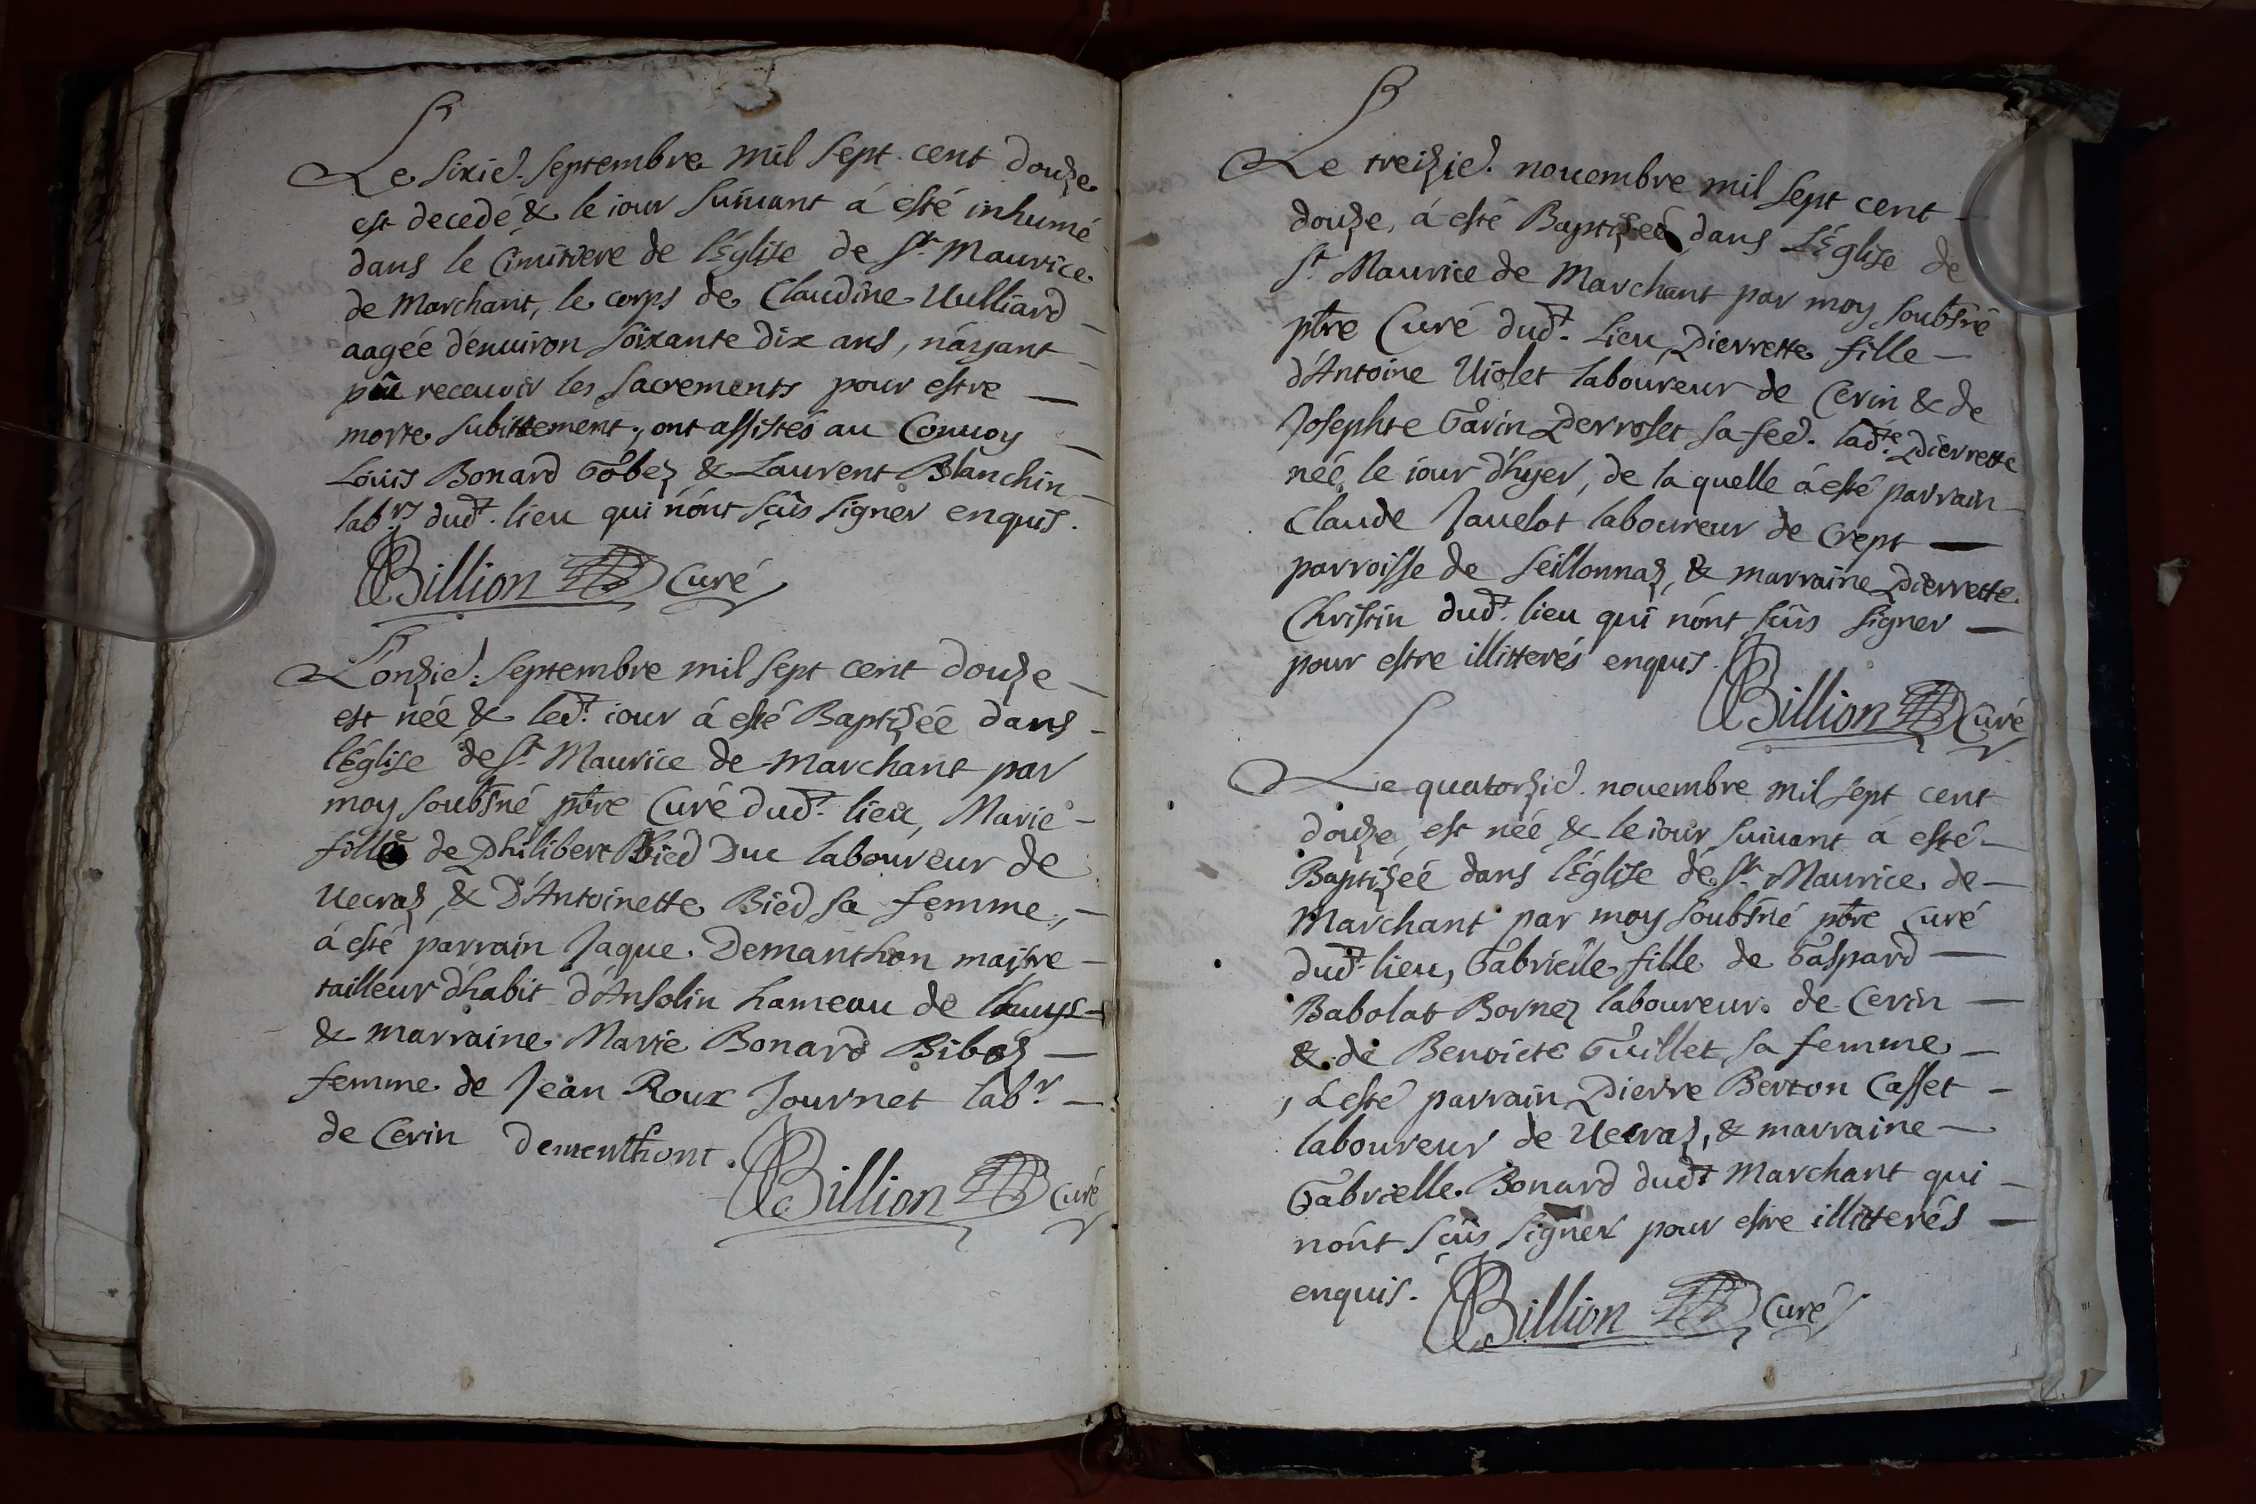 Le sixie. septembre mil sept cent douze
est decedé & le iour suiuant á esté inhumé
dans le Cimitiere de l'Eglise de St. Maurice
de Marchant, le corps de Claudine Uulliard
aagéé d'enuiron soixante dix ans, n'ayant
pû receuoir les sacrements pour estre
morte subittement, ont assistés au Conuoy
Loüis Bonard Gobez & Laurent Blanchin
labrs dudt. lieu qui n'ont sçûs signer enquis.
Billion Curé
L'onzie. septembre mil sept cent douze
est néé & ledt. iour á esté Baptizéé dans
l'église de St. Maurice de Marchant par
moy soubsné ptre Curé dudt. lieu, Marie
fille de Philibert Bied Duc laboureur de
Uecraz, & D'Antoinette Bied sa femme,
á esté parrain Jaque Demanthon maitre
tailleur d'habit d'Ansolin hameau de
& marraine Marie Bonard Biboz
femme de Jean Roux Journet labr.
de Cerin Dementhont.
Billion Curé
Le treizie. nouembre mil sept cent
douze, á esté Baptizéé dans L'Église de
St. Maurice de Marchant par moy soubsné
ptre Curé dudt. Lieu, Pierrette fille
d'Antoine Uiolet laboureur de Cerin & de
Josephte Gârin Perroset sa fee. ladte. Pierrette
néé le iour d'hyer, de la quelle á esté parrain
Claude Jauelot laboureur de Crept
parroisse de Seillonnaz, & marraine Pierrette
Christin dudt. lieu qui n'ont sçûs signer
pour estre illitterés enquis.
Billion Curé
Le quatorzie. nouembre mil sept cent
douze, est néé & le iour suiuant á esté
Baptizéé dans l'Église de St. Maurice de
Marchant par moy soubsné ptre Curé
dudt. lieu, Gabrielle fille de Gaspard
Babolat Bornez laboureur de Cerin
& de Benoicte Guillet sa femme
, á esté parrain Pierre Berton Casset
laboureur de Uecraz, & marraine
Gabrielle Bonard dudt Marchant qui
n'ont sçûs signer pour estre illitterés
enquis.
Billion Curé